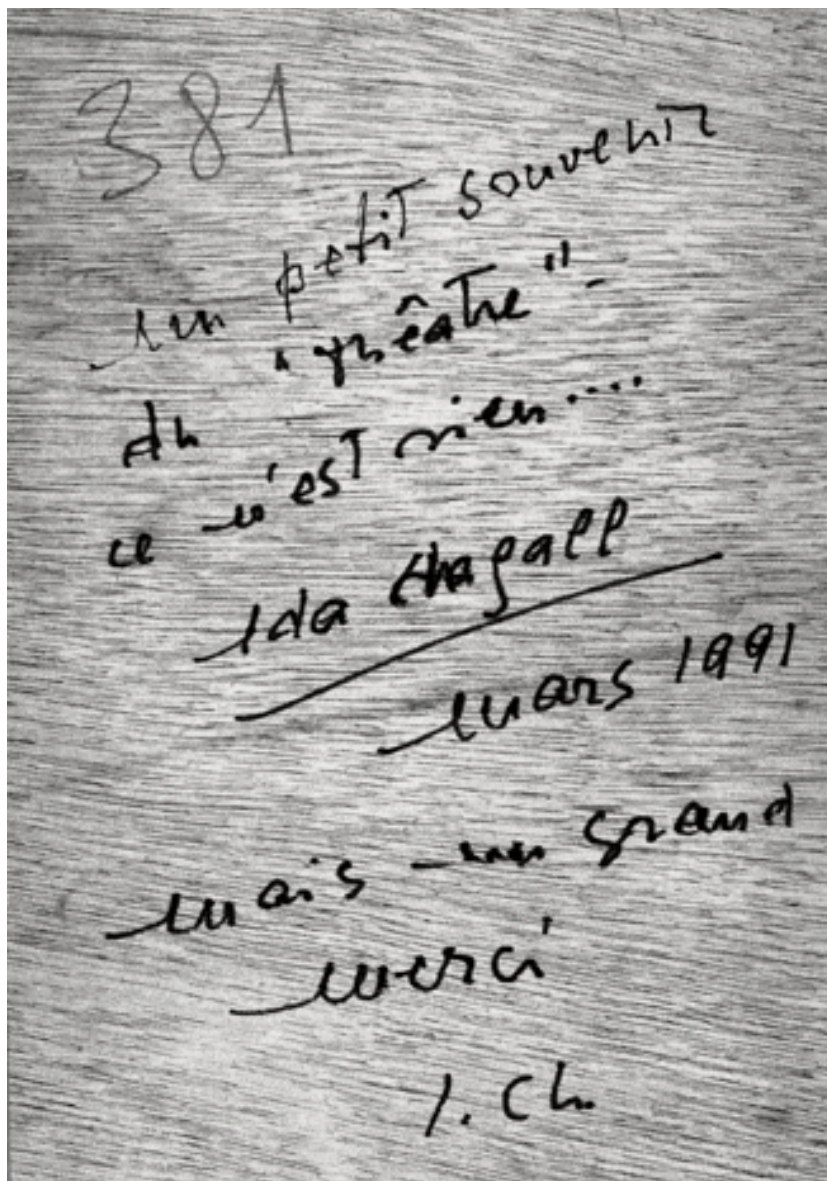 381
un petit souvenir
du "théâtre" -
ce n'est rien....
Ida Chagall
mars 1991
mais un grand
merci
I. Ch.